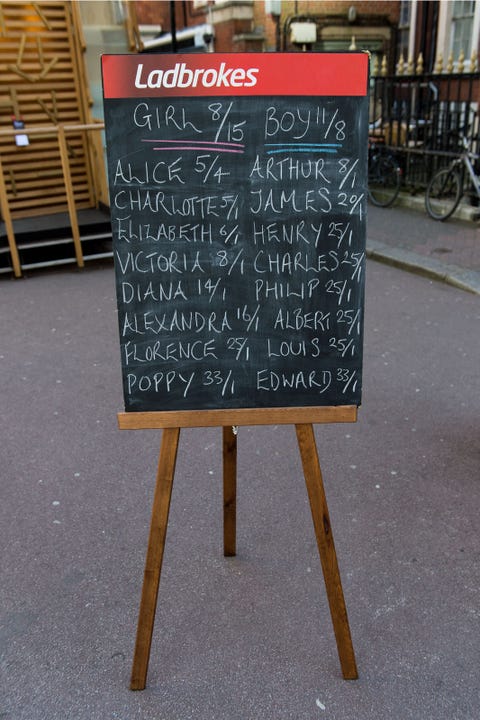 Ladbrokes
GIRL 8/15 BOY 11/8
ALICE 5/4 ARTHUR 8/1
CHARLOTTE 5/1 JAMES 20/1
ELIZABETH 6/1 HENRY 25/1
VICTORIA 8/1 CHARLES 25/1
DIANA 14/1 PHILIP 25/1
ALEXANDRA 16/1 ALBERT 25/1
FLORENCE 25/1 LOUIS 25/1
POPPY 33/1 EDWARD 33/1